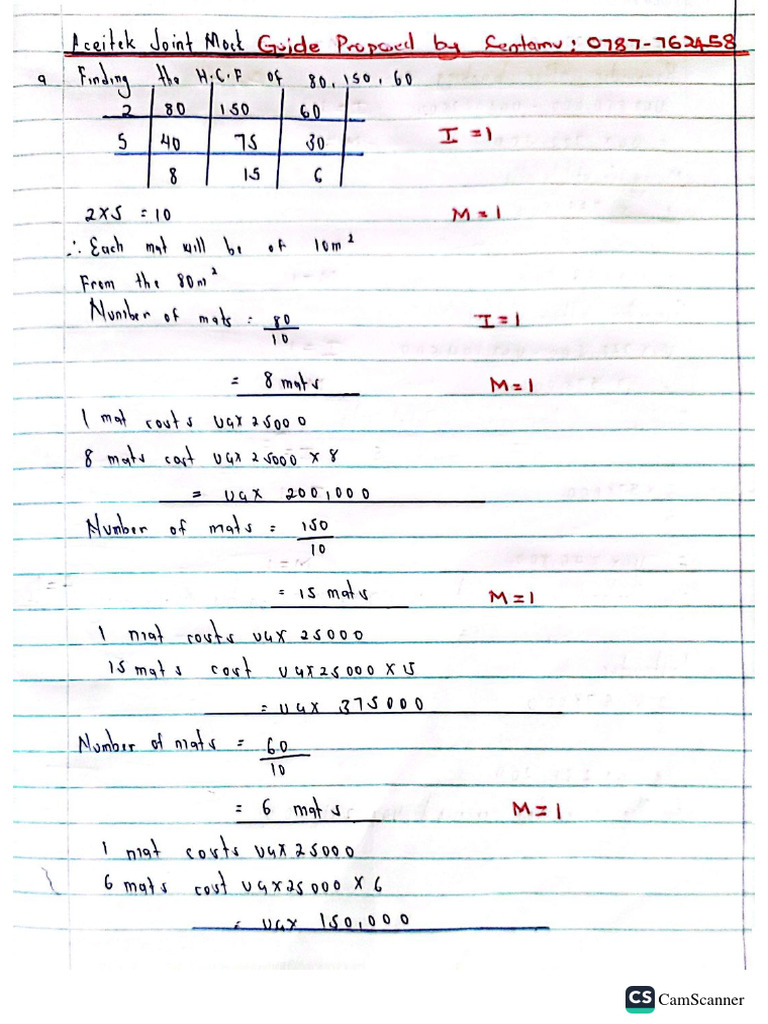 Aceitek Joint Mock Guide Prepared by Sentamu: 0787-762458
a Finding the H.C.F of 80, 150, 60
2 80 150 60
5 40 75 30 I = 1
8 15 6
2 x 5 = 10 M = 1
∴ Each mat will be of 10m²
From the 80m²
Number of mats = 80/10 I = 1
= 8 mats M = 1
1 mat costs UGX 25000
8 mats cost UGX 25000 x 8
= UGX 200,000
Number of mats = 150/10
= 15 mats M = 1
1 mat costs UGX 25000
15 mats cost UGX 25000 x 15
= UGX 375000
Number of mats = 60/10
= 6 mats M = 1
1 mat costs UGX 25000
6 mats cost UGX 25000 x 6
= UGX 150,000
CS CamScanner